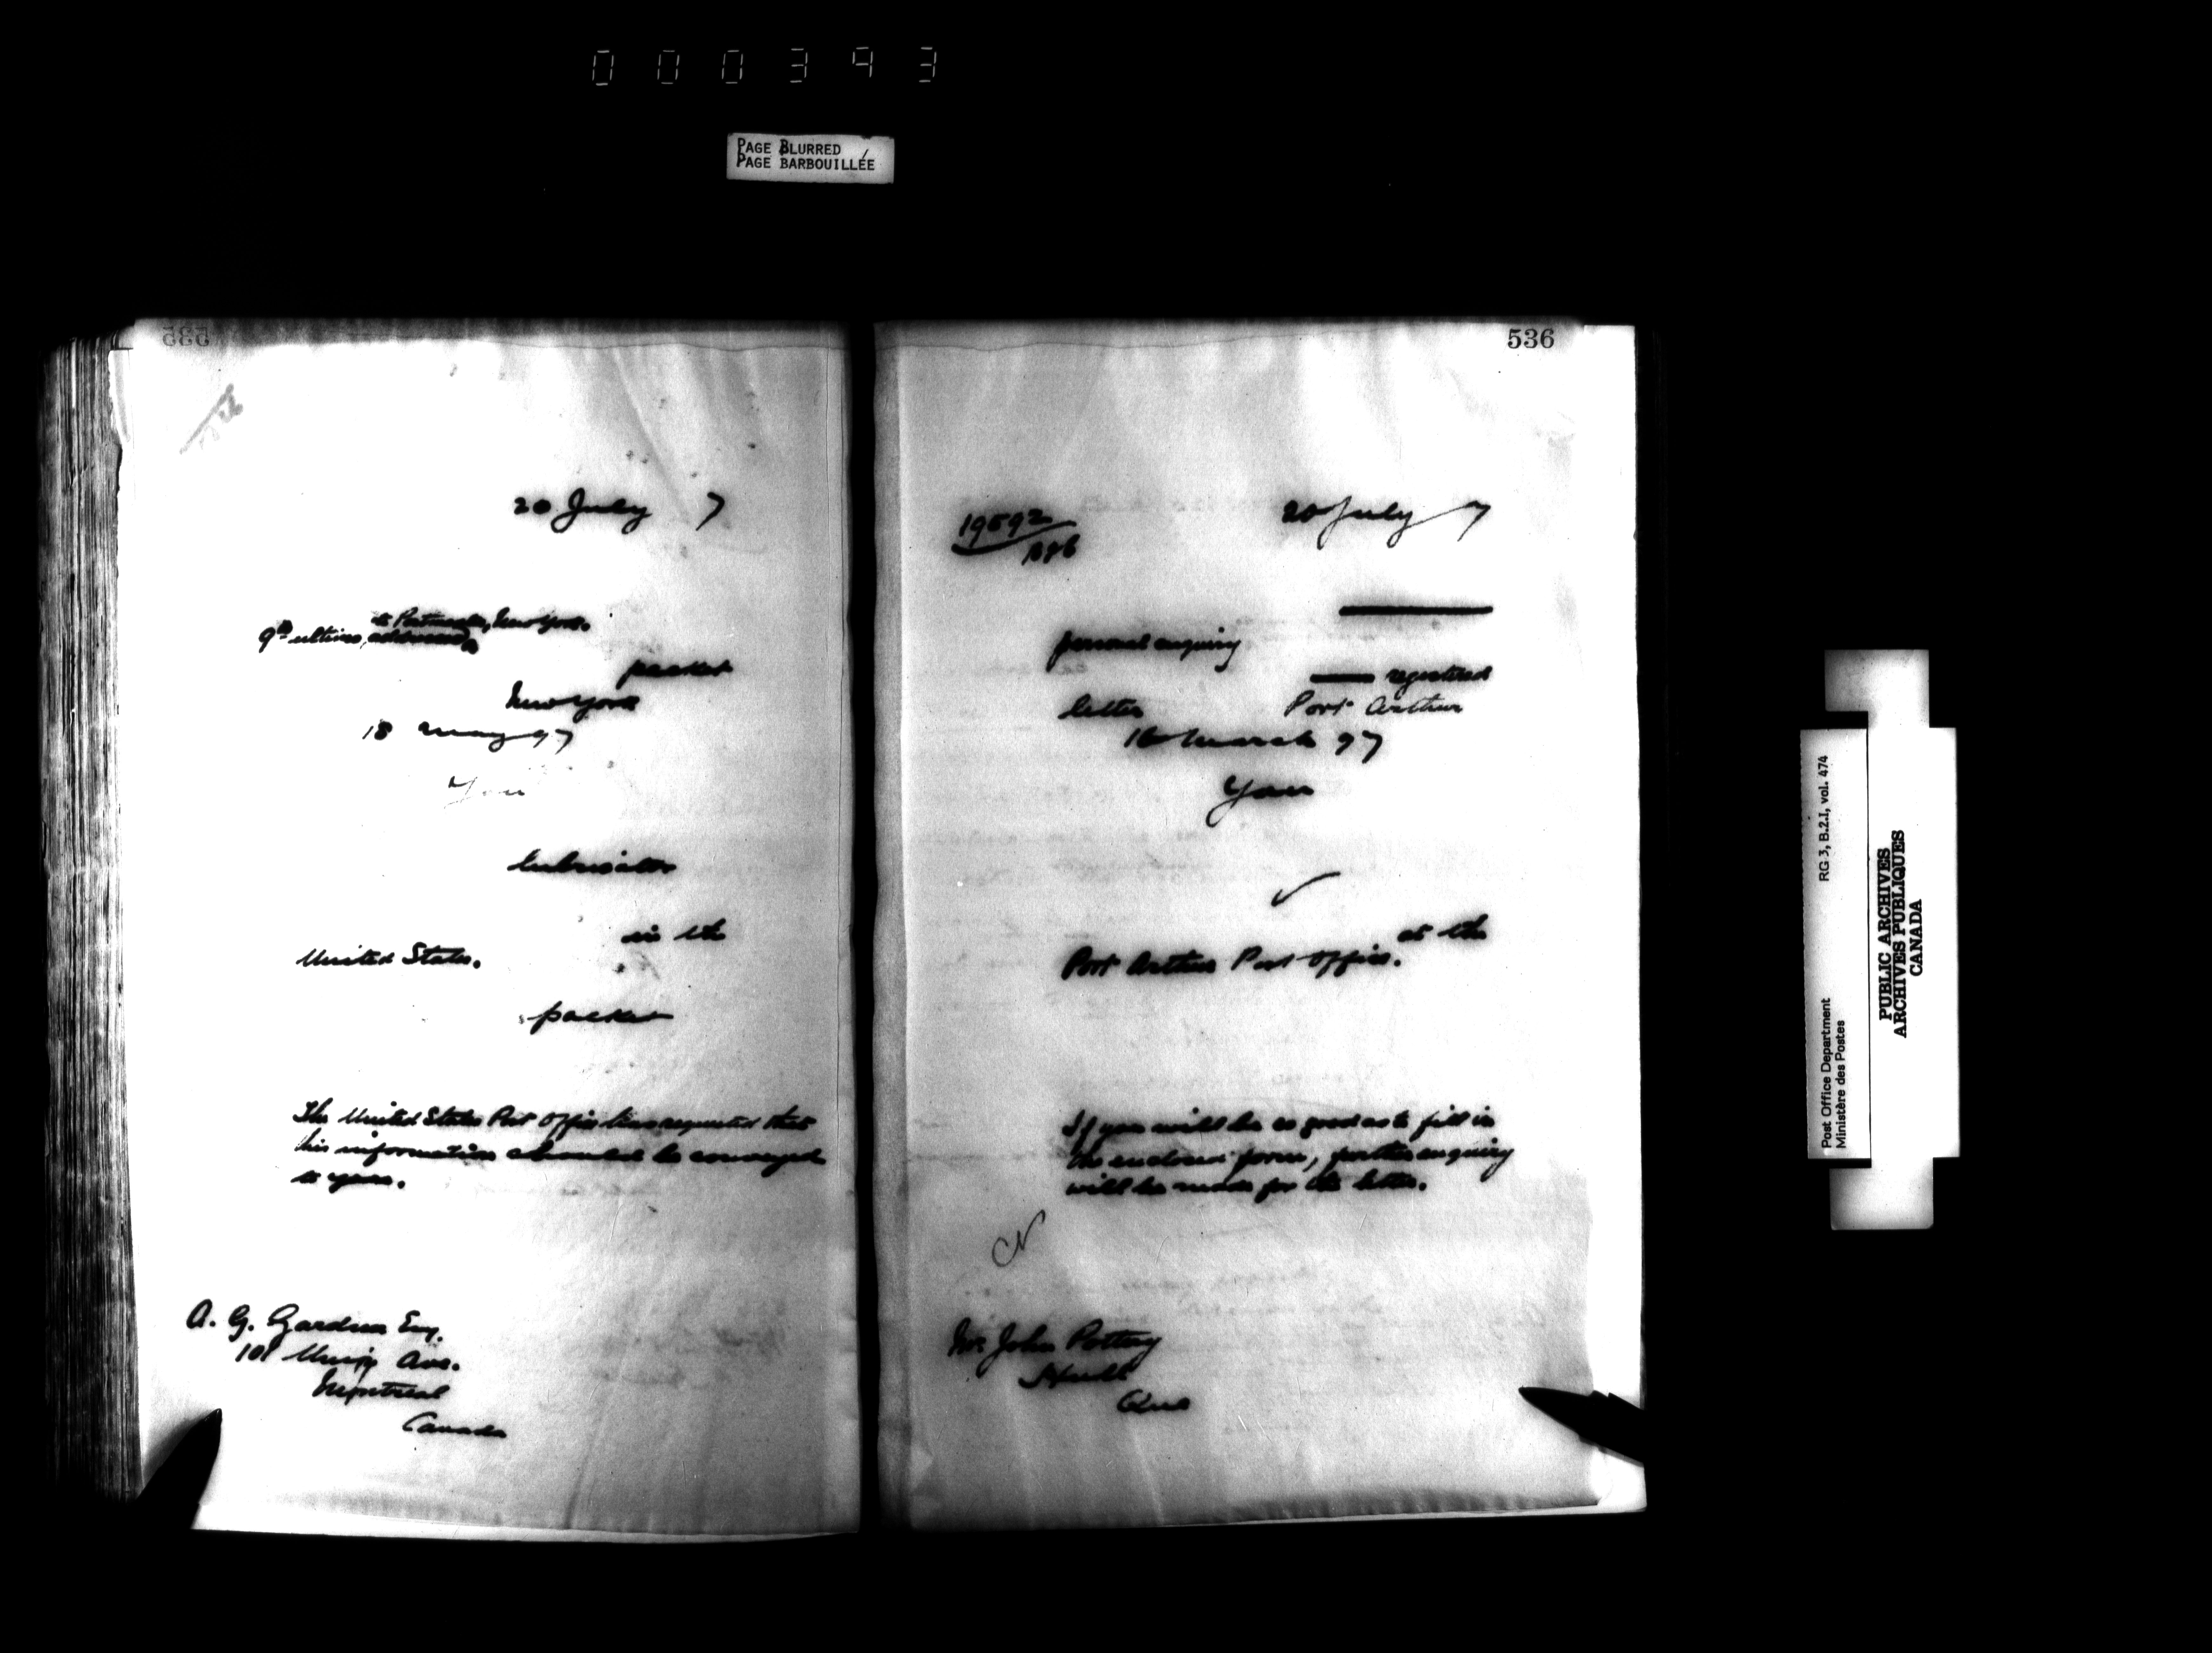 000393
PAGE BLURRED
PAGE BARBOUILLÉE
535
20 July 7
to Postmaster, New York.
9th ultimo, addressed
packet
New York
18 May 97
You
lubricator
in the
United States.
packet
The United States Post Office has requested that
this information should be conveyed
to you.
A. G. Gardner Esq.
101 Ave.
Montreal
Canada
536
19592
20 July 7
personal enquiry
registered
letter Port Arthur
16 March 97
You
at the
Port Arthur Post Office.
If you will be so good as to fill in
the enclosed form, further enquiry
will be made for the letter.
Mr. John
Hull
Que
RG 3, B.2.I, vol. 474
Post Office Department
Ministère des Postes
PUBLIC ARCHIVES
ARCHIVES PUBLIQUES
CANADA